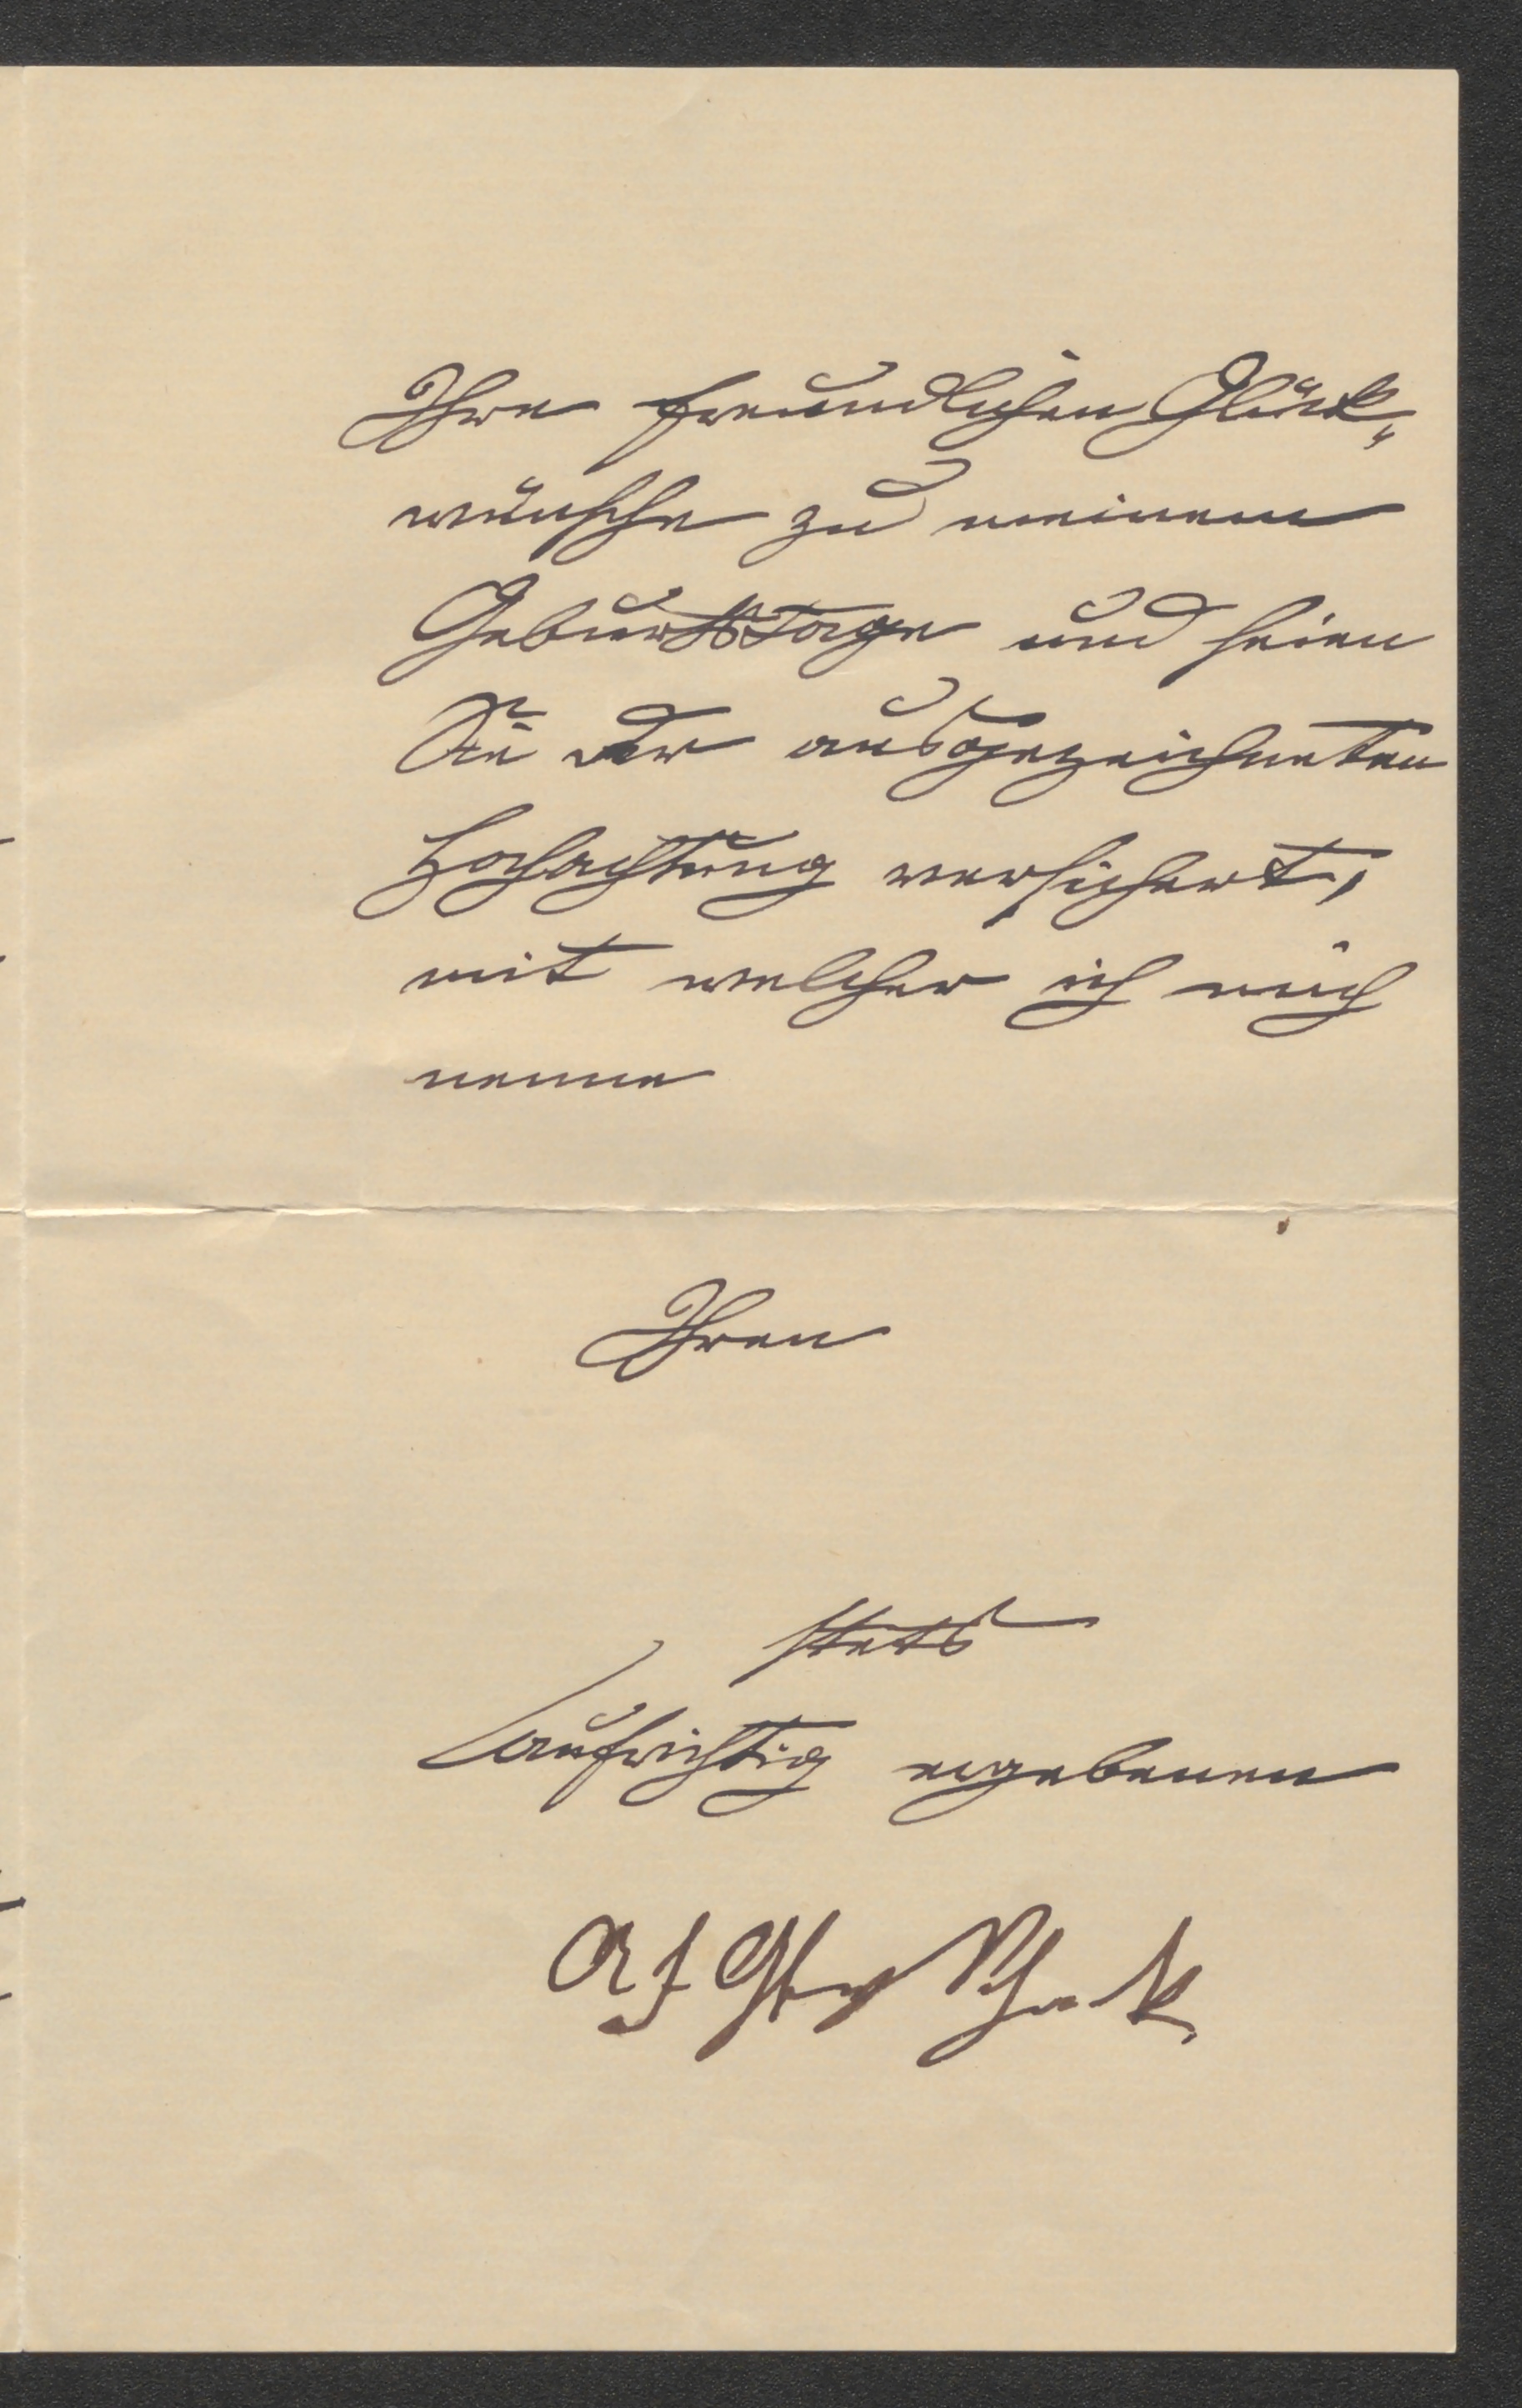 Ihre freundlichen Glück„
wünsche zu meinem
Geburtstage und seien
Sie der ausgezeichneten
Hochachtung versichert,
mit welcher ich mich
nenne
Ihren
stets
aufrichtig ergebenen
AF Schack